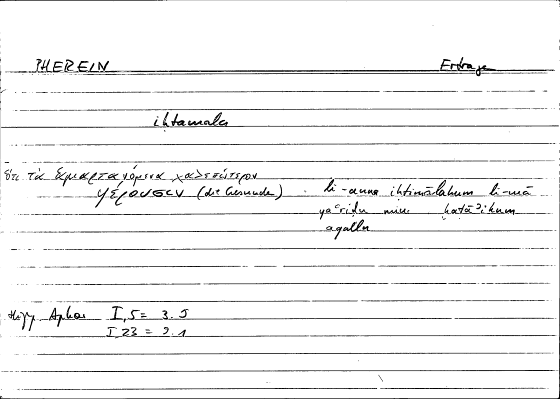 PHEREIN
Ertrage
iḥtamala
ὅτι τὰ ἁμαρτανόμενα χαλεπώτερον
φέρουσιν (die Gesunde)
li-anna iḥtimālahum li-mā
yaʿriḍu min ḫaṭāʾihum
aqallu
Hipp. Aphor. I,5 = 3.5
I,23 = 9.1